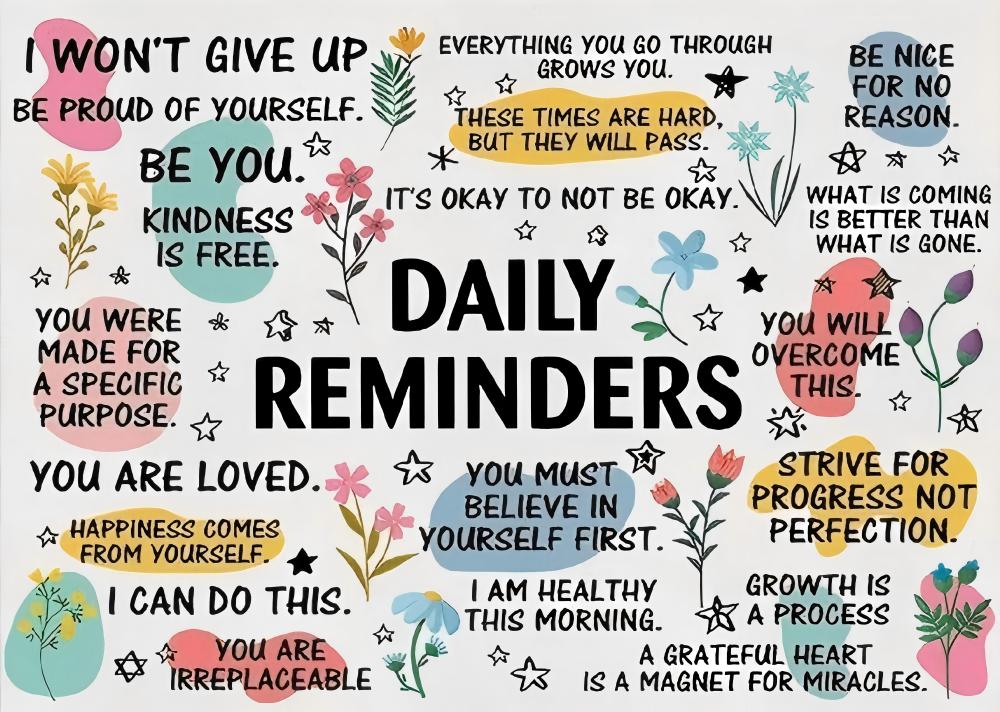 I WON'T GIVE UP
BE PROUD OF YOURSELF.
EVERYTHING YOU GO THROUGH
GROWS YOU.
THESE TIMES ARE HARD,
BUT THEY WILL PASS.
BE NICE
FOR NO
REASON.
BE YOU.
KINDNESS
IS FREE.
IT'S OKAY TO NOT BE OKAY.
WHAT IS COMING
IS BETTER THAN
WHAT IS GONE.
DAILY
REMINDERS
YOU WERE
MADE FOR
A SPECIFIC
PURPOSE.
YOU WILL
OVERCOME
THIS.
YOU ARE LOVED.
HAPPINESS COMES
FROM YOURSELF.
YOU MUST
BELIEVE IN
YOURSELF FIRST.
STRIVE FOR
PROGRESS NOT
PERFECTION.
I CAN DO THIS.
YOU ARE
IRREPLACEABLE
I AM HEALTHY
THIS MORNING.
GROWTH IS
A PROCESS
A GRATEFUL HEART
IS A MAGNET FOR MIRACLES.